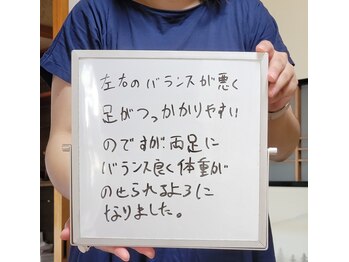 左右のバランスが悪く
足がつっかかりやすい
のですが両足に
バランス良く体重が
のせられるように
なりました。